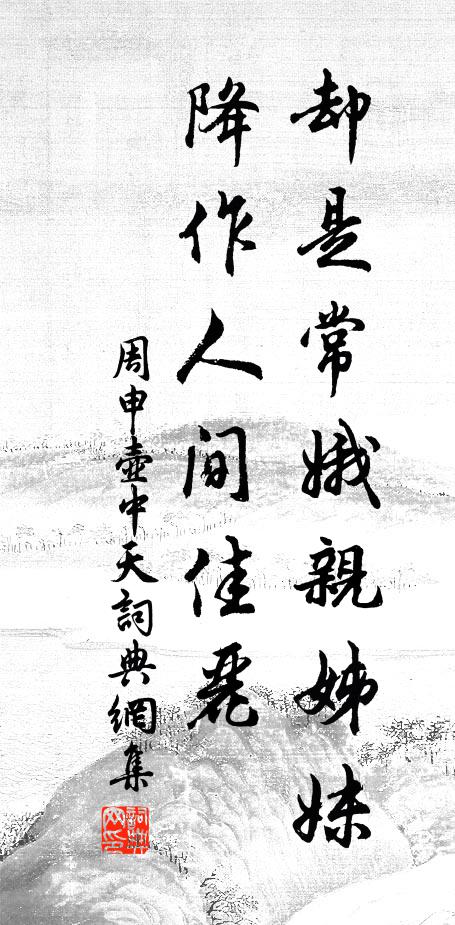 却是常娥親姊妹
降作人间佳麗
周申壺中天詞典網集